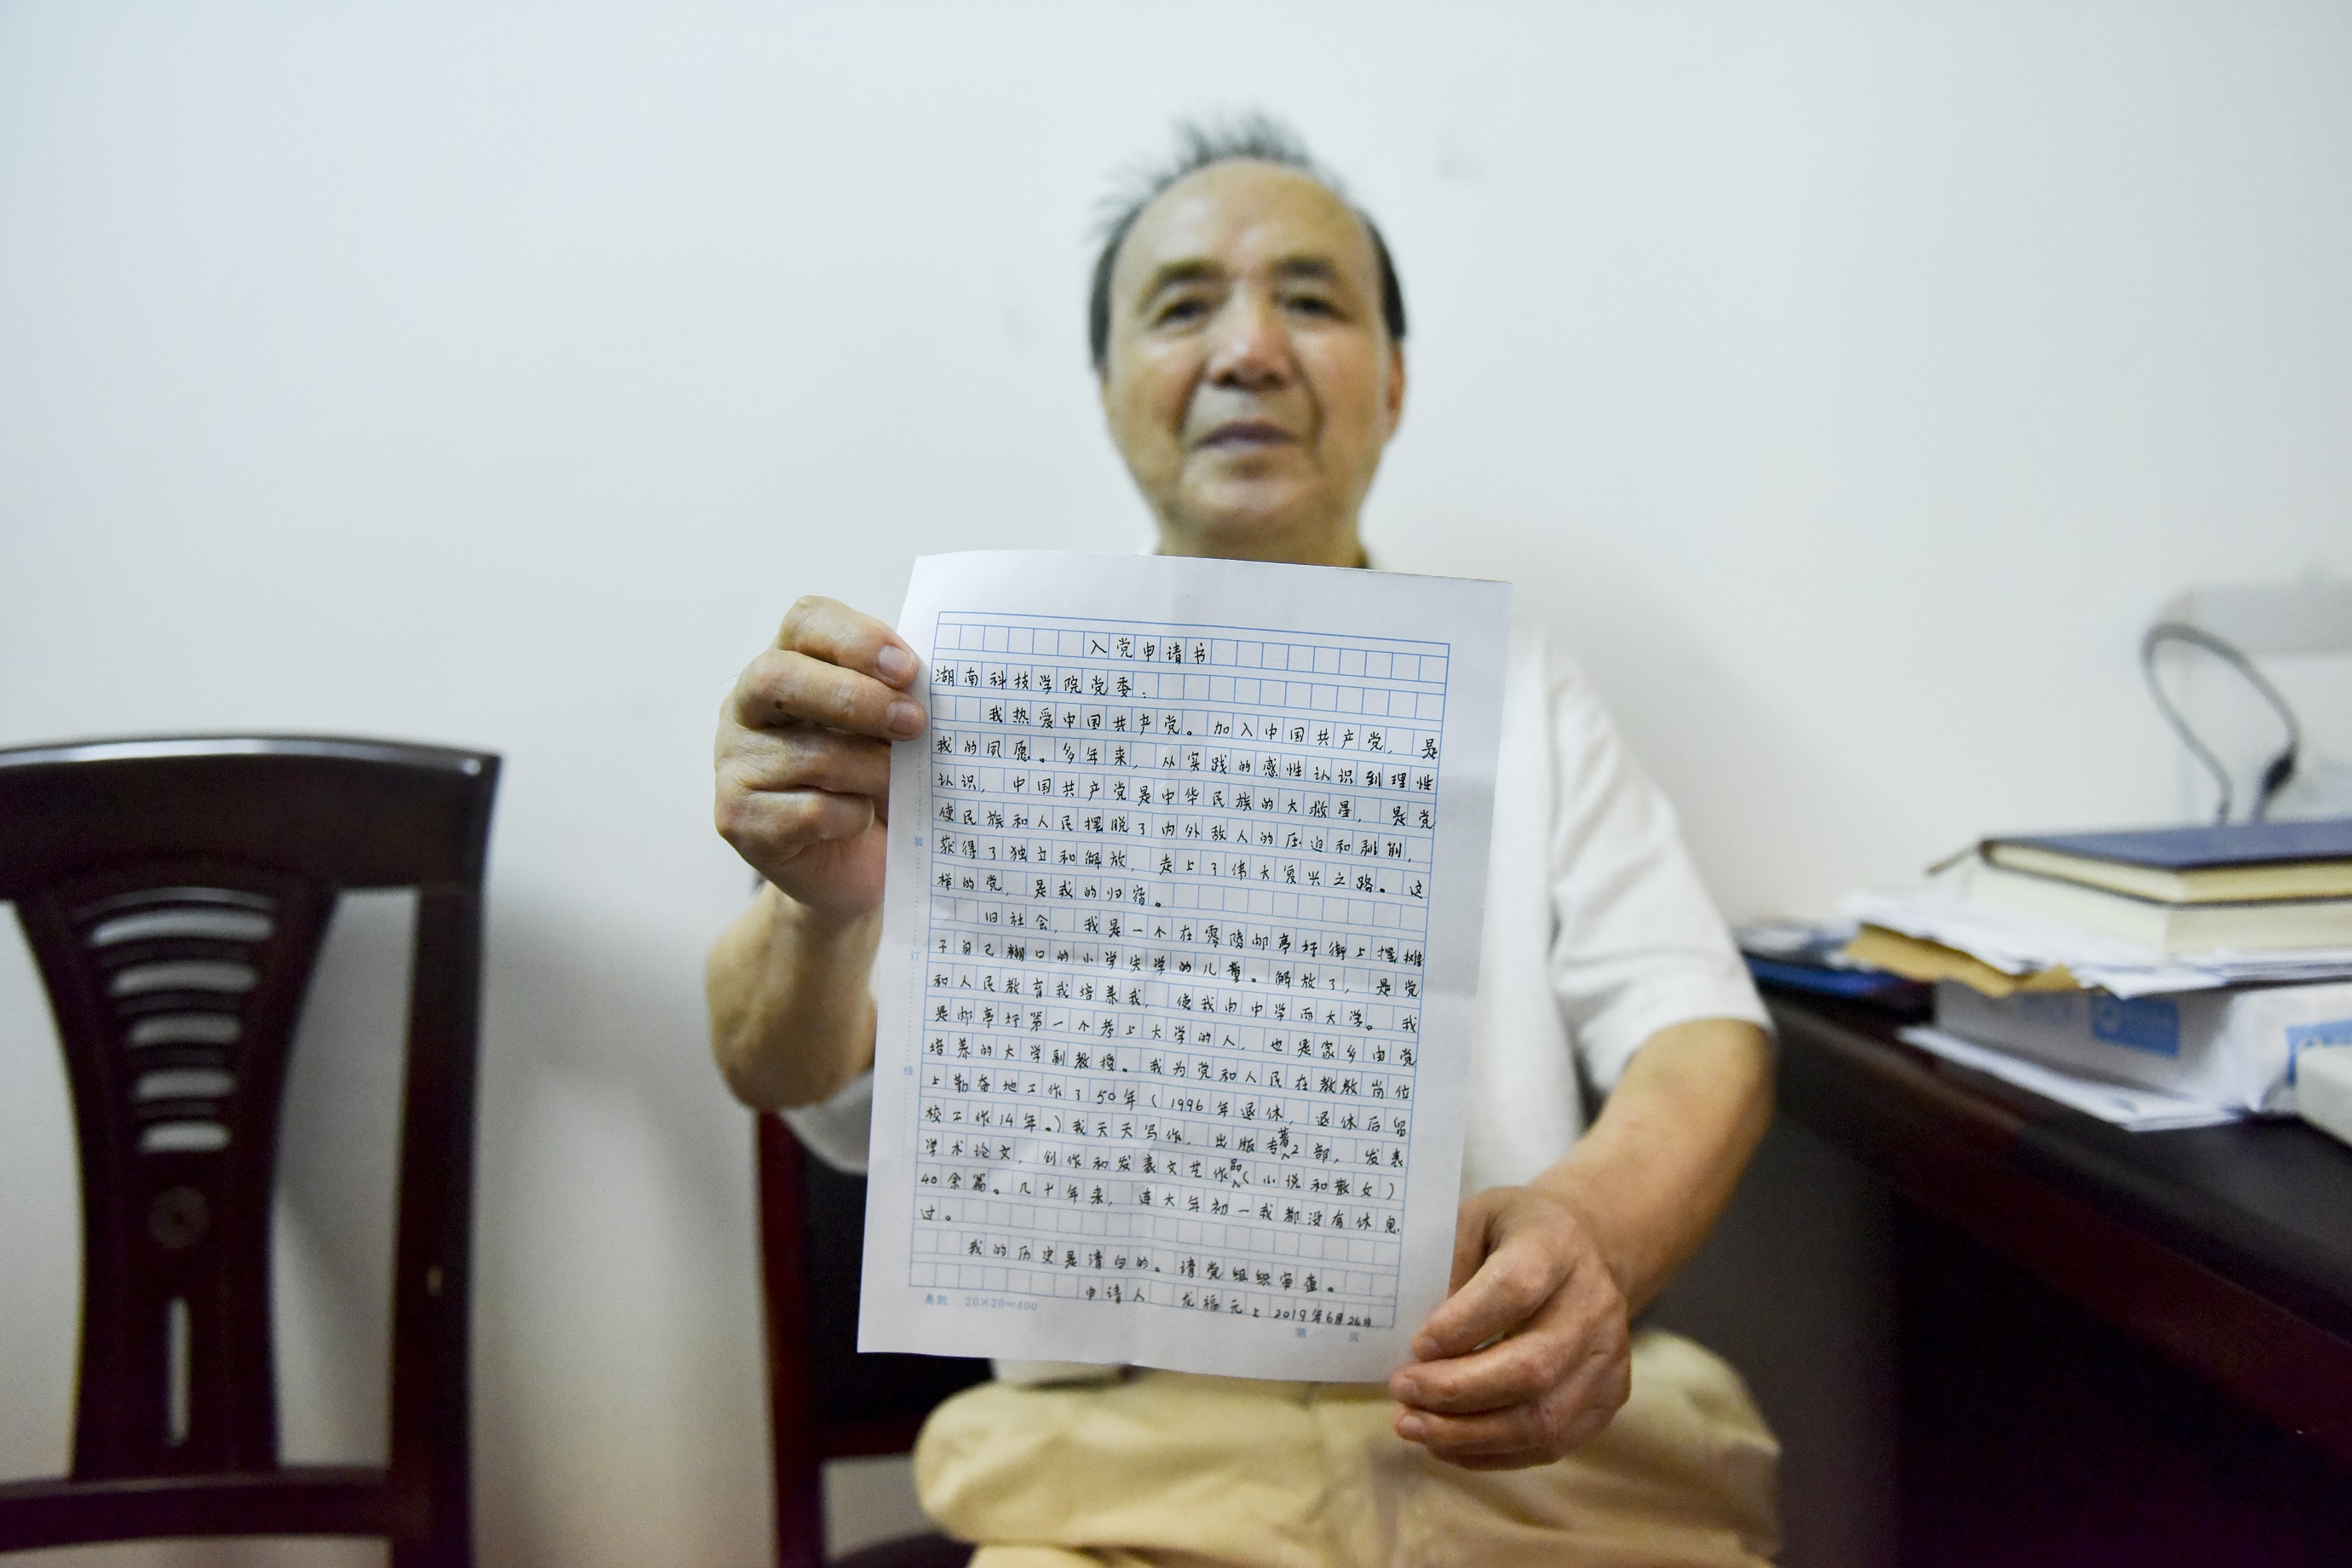 入党申请书
湖南科技学院党委：
我热爱中国共产党。加入中国共产党，是
我的同愿。多年来，从实践的感性认识到理性
认识，中国共产党是中华民族的大救星，是党
使民族和人民摆脱了内外敌人的压迫和剥削，
获得了独立和解放，走上了伟大复兴之路。这
样的党，是我的归宿。
旧社会，我是一个在零陵邮亭圩街上摆摊
子自己糊口的小学失学的儿童。解放了，是党
和人民教育我培养我，使我由中学而大学。我
是邮亭圩第一个考上大学的人，也是家乡由党
培养的大学副教授。我为党和人民在教敎岗位
上勤奋地工作了50年（1996年退休，退休后留
校工作14年。）我天天写作，出版专著2部，发表
学术论文，创作和发表文艺作品（小说和散文）
40余篇。几十年来，连大年初一我都没有休息
过。
我的历史是清白的。请党组织审查。
申请人 龙福元上 2019年6月26日
装
订
线
奥凯 20×20=400
第 页